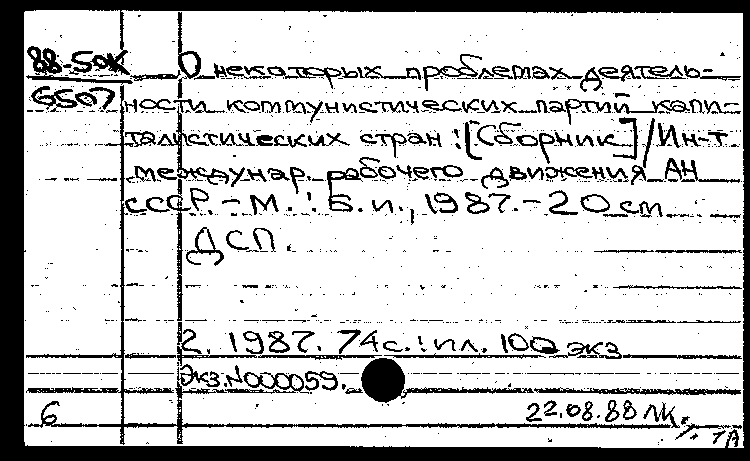 88-5дк О некоторых проблемах деятель-
6507 ности коммунистических партий капи-
талистических стран : [Сборник] / Ин-т
междунар. рабочего движения АН
СССР. - М. : Б. и., 1987. - 20 см
ДСП.
2. 1987. 74 с. : ил. 100 экз
Экз. N 000059.
6 22.08.88 ЛК
ТА